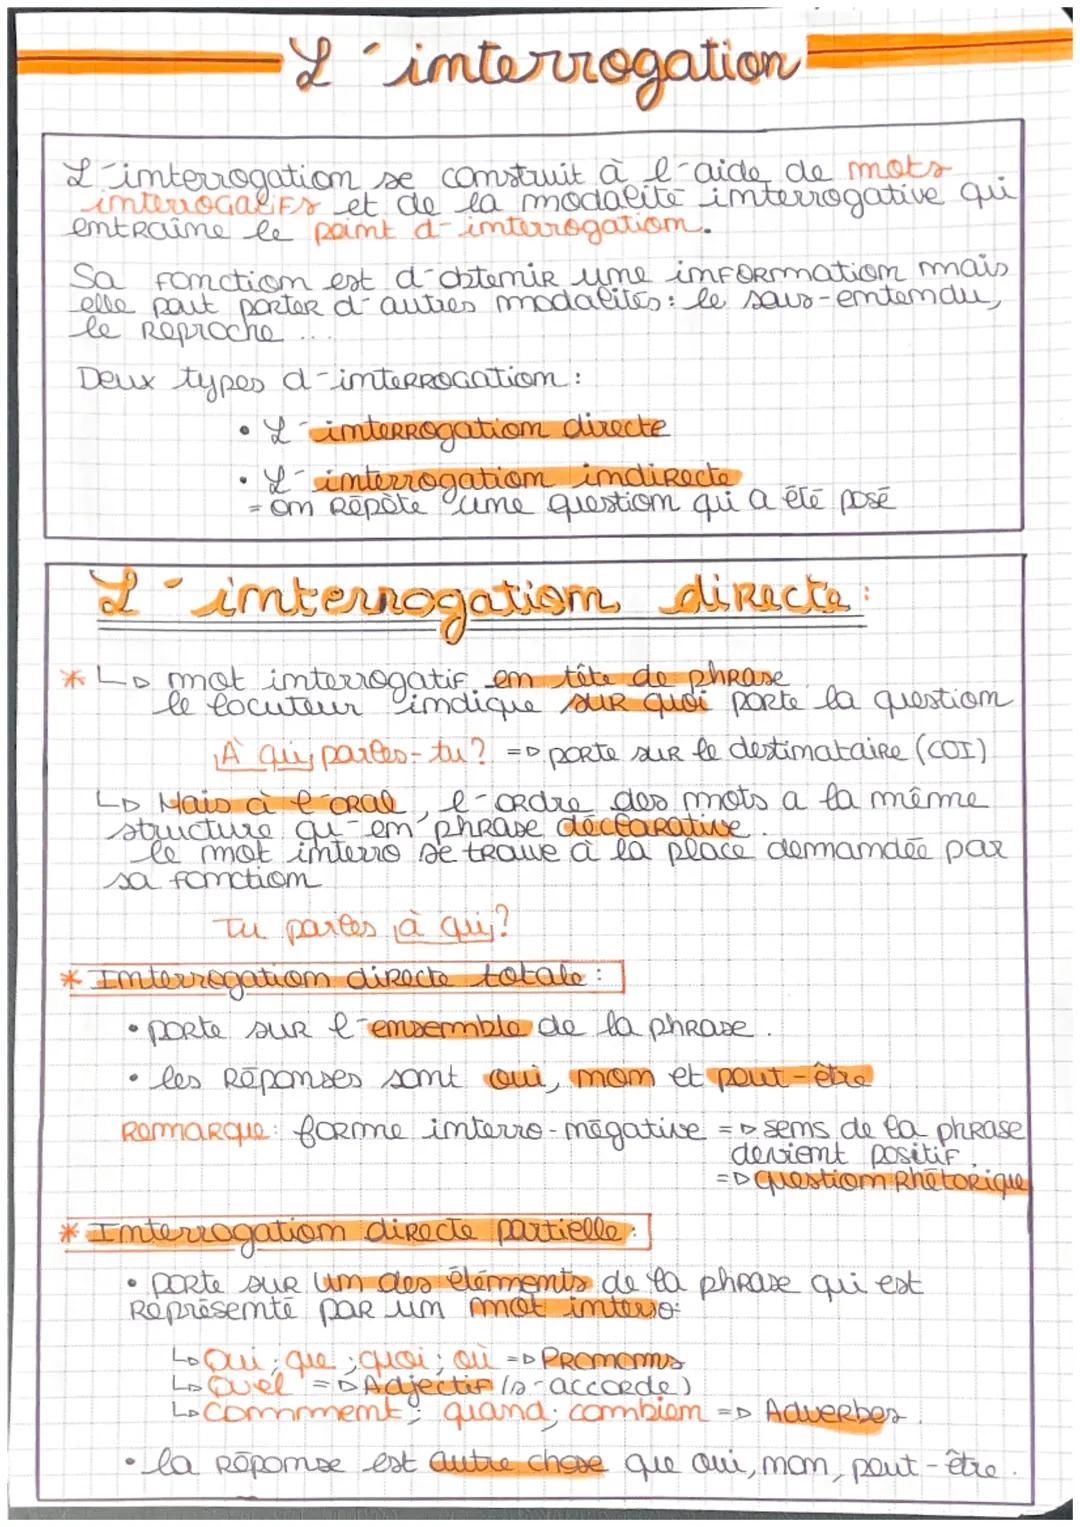 L'interrogation
L'interrogation se construit à l'aide de mots
interrogatifs et de la modalité interrogative qui
entraîne le point d'interrogation.
Sa fonction est d'obtenir une information mais
elle peut porter d'autres modalités : le sous-entendu,
le reproche ...
Deux types d'interrogation :
• L'interrogation directe
• L'interrogation indirecte
= on répète une question qui a été posé
L'interrogation directe :
* ↳ mot interrogatif en tête de phrase
le locuteur indique sur quoi porte la question
À qui parles-tu ? => porte sur le destinataire (COI)
↳ Mais à l'oral, l'ordre des mots a la même
structure qu'en phrase déclarative.
le mot interro se trouve à la place demandée par
sa fonction
Tu parles à qui ?
* Interrogation directe totale :
• porte sur l'ensemble de la phrase.
• les réponses sont oui, non et peut-être
Remarque : forme interro-négative => sens de la phrase
devient positif.
=> question rhétorique
* Interrogation directe partielle :
• porte sur un des éléments de la phrase qui est
représenté par un mot interro :
↳ Qui ; que ; quoi ; où => Pronoms
↳ Quel => Adjectif (s'accorde)
↳ Comment ; quand ; combien => Adverbes.
• la réponse est autre chose que oui, non, peut-être.